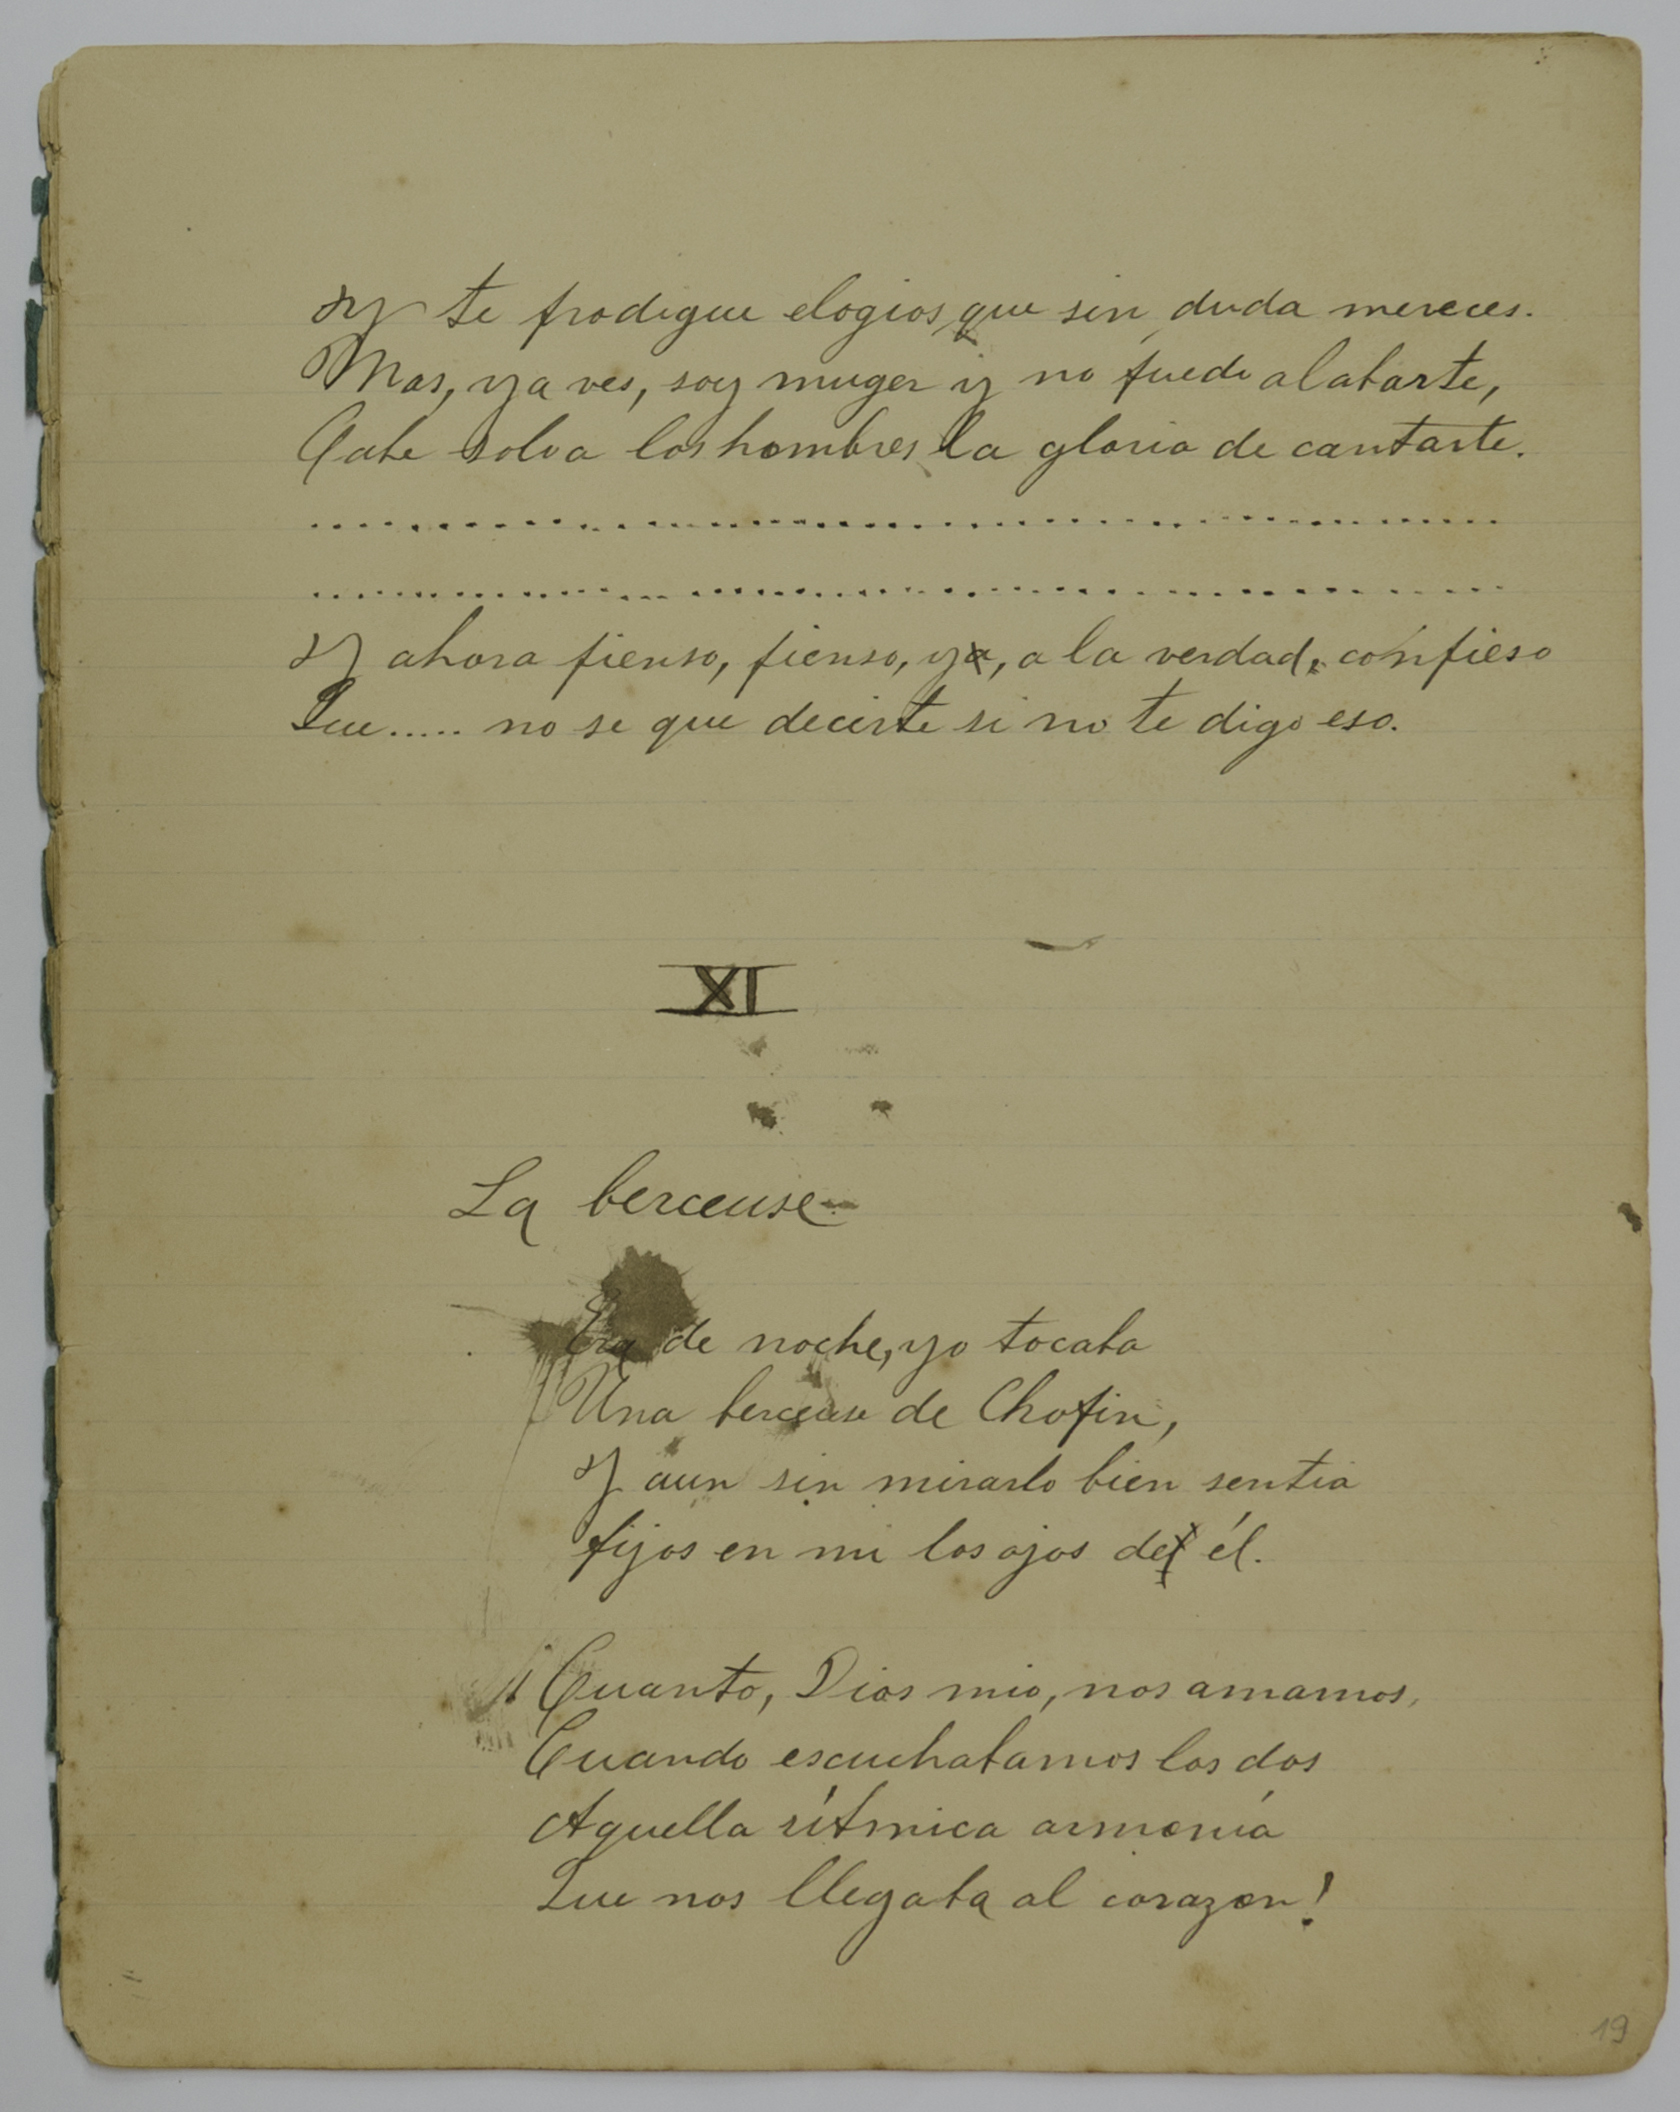 Y te prodigue elogios, que sin duda mereces.
Mas, ya ves, soy muger y no puedo alabarte,
Cabe solo a los hombres la gloria de cantarte.
........................................
........................................
Y ahora pienso, pienso, y, a la verdad, confieso
Que ..... no se que decirte si no te digo eso.
XI
La berceuse
Era de noche, yo tocaba
Una berceuse de Chopin,
Y aun sin mirarlo bien sentia
fijos en mi los ojos de él.
¡Cuanto, Dios mio, nos amamos,
Cuando escuchabamos los dos
Aquella rítmica armonía
Que nos llegaba al corazon!
19